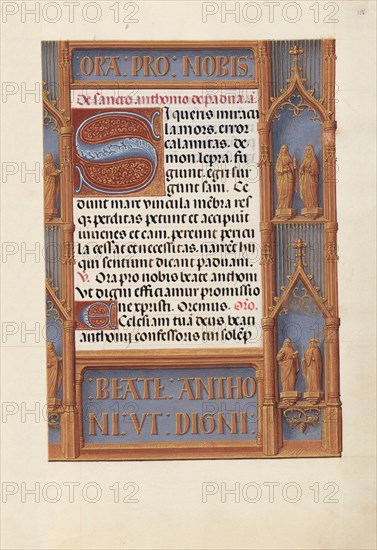 ORA PRO NOBIS
De sancto anthonio de padua. a.
Si quens miracu
la mors, error
calamitas, de
mon lepra fu
giunt, egri sur
gunt sani. Ce
dunt mare vincula mēbra res
q; perditas petunt et accipiūt
iuvenes et cani, pereunt pericu
la cessat et necessitas, narrēt hi
qui sentiunt dicant paduani.
V. Ora pro nobis beate anthoni
Vt digni efficiamur promissio
ne xpristi. Oremus. Oro.
Ecclesiam tuā deus beati
anthonij confessoris tui solēp
: BEATE : ANTHO
NI : VT : DIGNI :
PHOTO 12